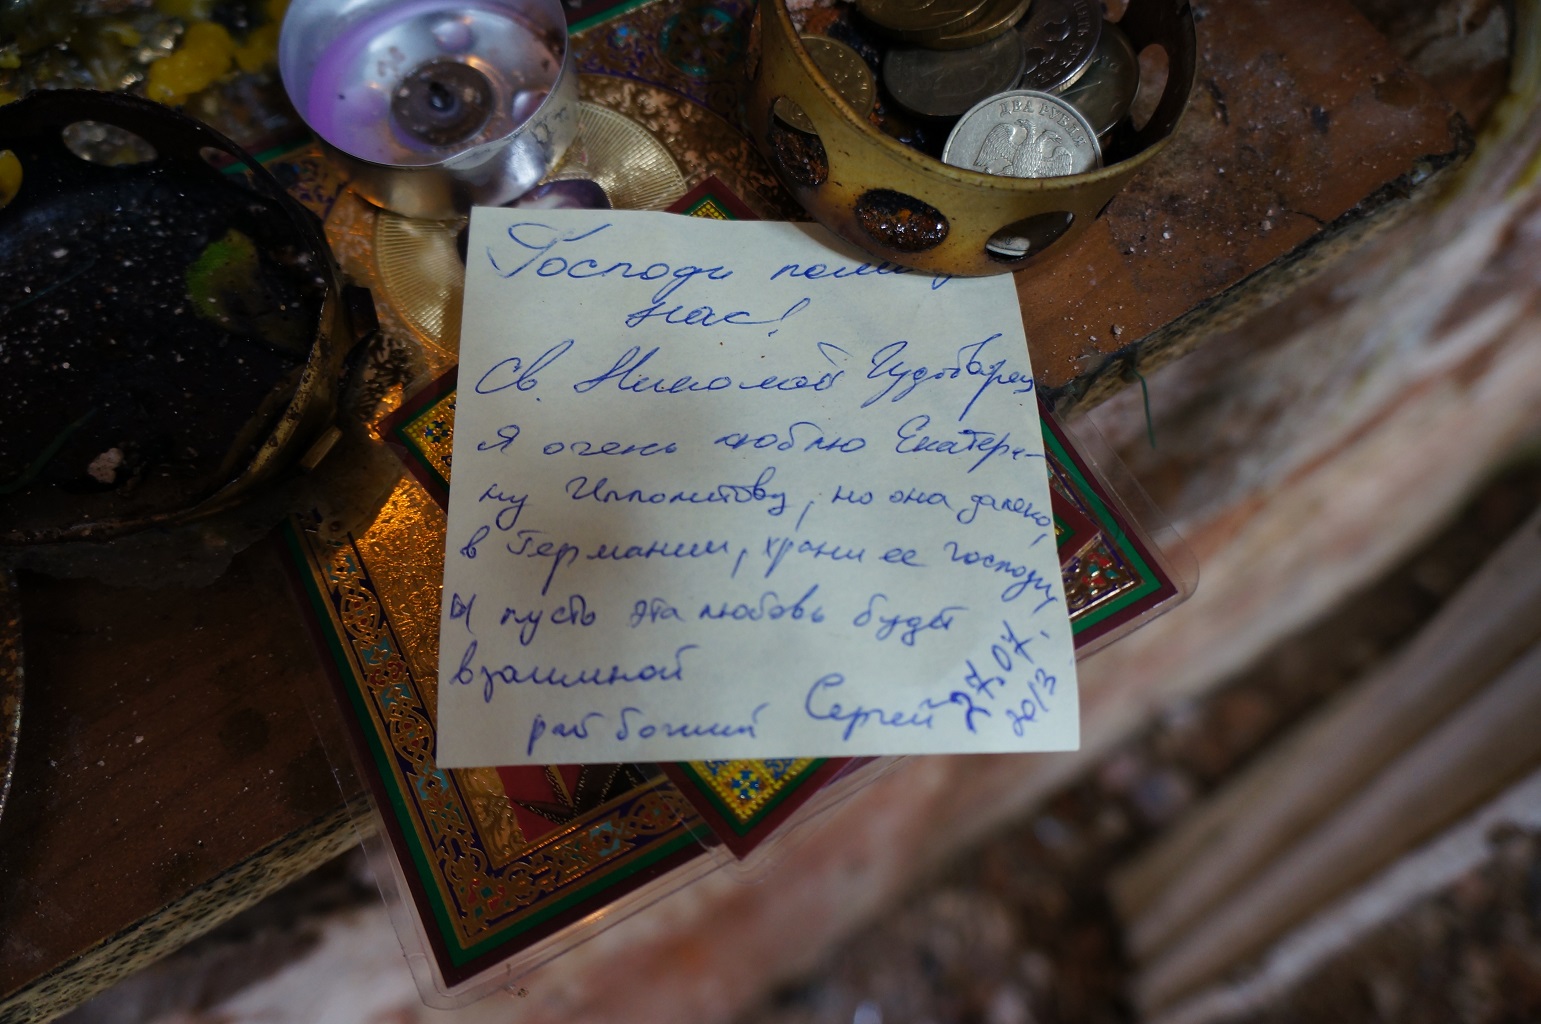 ДВА РУБЛЯ
Господи поми
нас!
Св. Николай Чудотворец
я очень люблю Екатери-
ну Ипполитову, но она далеко,
в Германии, храни ее господи,
И пусть эта любовь будет
взаимной
раб божий Сергей 27.07.
2013